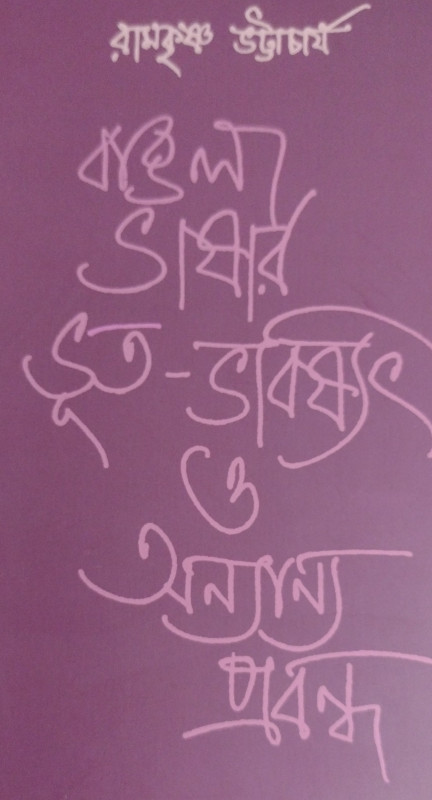 রামকৃষ্ণ ভট্টাচার্য
বাঙলা
ভাষার
ভূত-ভবিষ্যৎ
ও
অন্যান্য
প্রবন্ধ